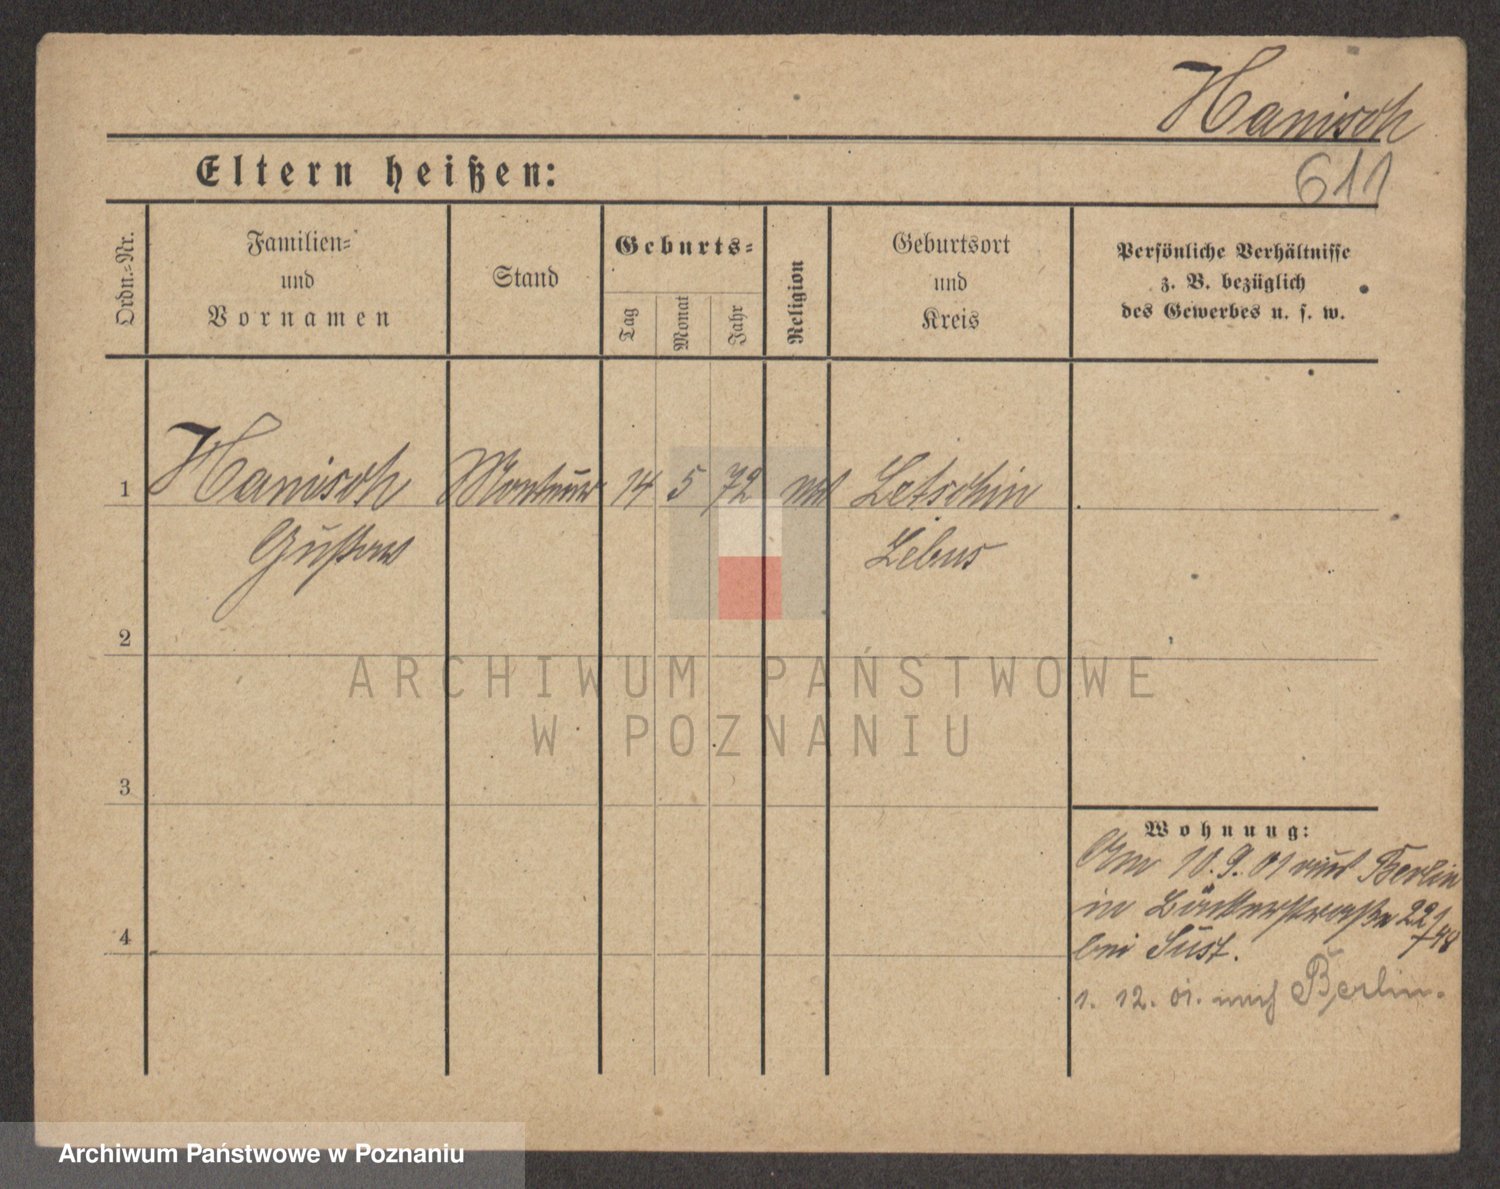 Hanisch
611
Eltern heißen:
Ordn.=Nr.
Familien=
und
Vornamen
Stand
Geburts=
Tag
Monat
Jahr
Religion
Geburtsort
und
Kreis
Persönliche Verhältnisse
z. B. bezüglich
des Gewerbes u. s. w.
1
Hanisch
Monteur
14
5
72
Letschin
Gustav
Lebus
2
ARCHIWUM PAŃSTWOWE
W POZNANIU
3
Wohnung:
10.9.01 aus Berlin
in Bäckerstraße 22
4
bei Sust.
1. 12. 01. nach Berlin.
Archiwum Państwowe w Poznaniu